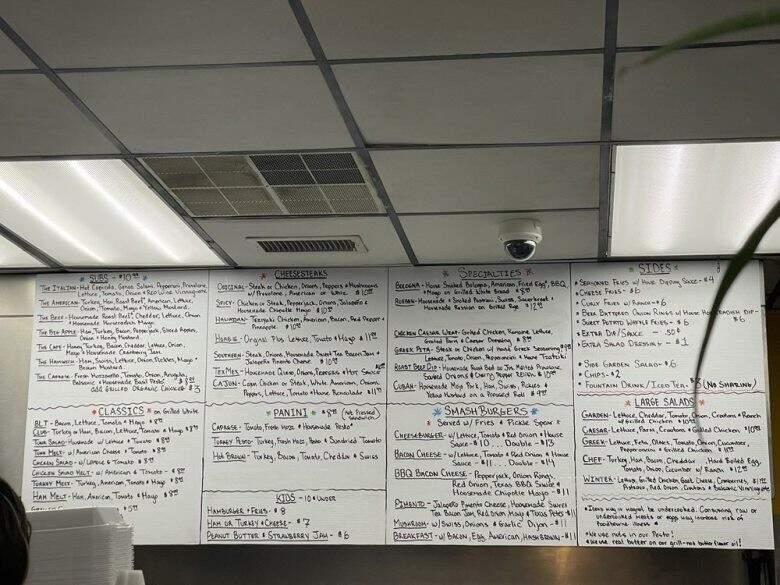 * SUBS - $10.99 *
THE ITALIAN - Hot Capicola, Genoa Salami, Pepperoni, Provolone,
Lettuce, Tomato, Onion & Red Wine Vinaigrette
THE AMERICAN - Turkey, Ham, Roast Beef, American, Lettuce,
Onion, Tomato, Mayo & Yellow Mustard
THE BEEF - Housemade Roast Beef, Cheddar, Lettuce, Onion
& Housemade Horseradish Mayo
THE BIG APPLE - Ham, Turkey, Bacon, Pepperjack, Sliced Apples,
Onion & Honey Mustard
THE CAPE - Ham, Turkey, Bacon, Cheddar, Lettuce, Onion,
Mayo & Housemade Cranberry Jam
THE HAMWICH - Ham, Swiss, Lettuce, Onion, Pickles, Mayo &
Brown Mustard
THE CAPRESE - Fresh Mozzarella, Tomato, Onion, Arugula,
Balsamic & Housemade Basil Pesto
add GRILLED ORGANIC CHICKEN $3
* CLASSICS * on Grilled White
BLT - Bacon, Lettuce, Tomato & Mayo
CLUB - Turkey or Ham, Bacon, Lettuce, Tomato & Mayo
TUNA SALAD - Housemade w/ Lettuce & Tomato
TUNA MELT - w/ American Cheese & Tomato
CHICKEN SALAD - w/ Lettuce & Tomato
CHICKEN SALAD MELT - w/ American & Tomato
TURKEY MELT - Turkey, American, Tomato & Mayo
HAM MELT - Ham, American, Tomato & Mayo
CHEESESTEAKS
ORIGINAL - Steak or Chicken, Onions, Peppers & Mushrooms
w/ Provolone, American or Wiz
SPICY - Chicken or Steak, Pepperjack, Onions, Jalapeño &
Housemade Chipotle Mayo
HAWAIIAN - Teriyaki Chicken, American, Bacon, Red Pepper &
Pineapple
HOAGIE - Original Plus Lettuce, Tomato & Mayo
SOUTHERN - Steak, Onions, Housemade Sweet Tea Bacon Jam &
Jalapeño Pimento Cheese
TEXMEX - Housemade Queso, Onions, Peppers & Hot Sauce
CAJUN - Cajun Chicken or Steak, White American, Onions,
Peppers, Lettuce, Tomato & House Remoulade
* PANINI * $8.99 (Not Pressed Sandwich)
CAPRESE - Tomato, Fresh Mozz & Housemade Pesto*
TURKEY PESTO - Turkey, Fresh Mozz, Pesto & Sundried Tomato
HOT BROWN - Turkey, Bacon, Tomato, Cheddar & Swiss
KIDS - 10 & UNDER
HAMBURGER & FRIES - $8
HAM OR TURKEY & CHEESE - $7
PEANUT BUTTER & STRAWBERRY JAM - $6
* SPECIALTIES *
BOLOGNA - House Smoked Bologna, American, Fried Egg*, BBQ,
& Mayo on Grilled White Bread
REUBEN - Housemade & Smoked Pastrami, Swiss, Sauerkraut &
Housemade Russian on Grilled Rye
CHICKEN CAESAR WRAP - Grilled Chicken, Romaine Lettuce,
Grated Parm & Caesar Dressing
GREEK PITA - Steak or Chicken w/ House Greek Seasoning
Lettuce, Tomato, Onion, Pepperoncini & House Tzatziki
ROAST BEEF DIP - Housemade Roast Beef w/ Jus, Melted Provolone,
Sauteed Onions & Cherry Pepper Relish
CUBAN - Housemade Mojo Pork, Ham, Swiss, Pickles &
Yellow Mustard on a Pressed Roll
* SMASHBURGERS *
Served w/ Fries & Pickle Spear
CHEESEBURGER - w/ Lettuce, Tomato & Red Onion & House
Sauce - $10 ... Double - $13
BACON CHEESE - Lettuce, Tomato & Red Onion & House
Sauce - $11 ... Double - $14
BBQ BACON CHEESE - Pepperjack, Onion Rings,
Red Onion, Texas BBQ Sauce &
Housemade Chipotle Mayo - $11
PIMENTO - Jalapeño Pimento Cheese, Housemade Sweet
Tea Bacon Jam, Red Onion, Mayo & Texas Pete - $11
MUSHROOM - w/ Swiss, Onions & Garlic Dijon - $11
BREAKFAST - w/ BACON, Egg, American, HASH BROWN - $11
* SIDES *
* SEASONED FRIES w/ House Dipping Sauce - $4
* CHEESE FRIES - $6
* CURLY FRIES w/ RANCH - $6
* BEER BATTERED ONION RINGS w/ House HORSERADISH DIP - $6
* SWEET POTATO WAFFLE FRIES - $6
* EXTRA DIP/SAUCE - .50¢
* EXTRA SALAD DRESSING - $1
* SIDE GARDEN SALAD - $6
* CHIPS - $2
* FOUNTAIN DRINK/ICED TEA - $3 (NO SHARING)
* LARGE SALADS *
GARDEN - Lettuce, Cheddar, Tomato, Onion, Croutons & Ranch
w/ Grilled Chicken
CAESAR - Lettuce, Parm, Croutons & Grilled Chicken
GREEK - Lettuce, Feta, Olives, Tomato, Onion, Cucumber,
Pepperoncini & Grilled Chicken
CHEF - Turkey, Ham, Bacon, Cheddar, Hard Boiled Egg,
Tomato, Onion, Cucumber w/ Ranch
WINTER - Lettuce, Grilled Chicken, Goat Cheese, Cranberries,
Pistachio, Red Onion, Croutons & Balsamic Vinaigrette
* Items may or may not be undercooked. Consuming raw or
undercooked meats or eggs may increase risk of
foodborne illness *
* We use nuts in our Pesto!
* We use real butter on our grill - not butter flavor oil!